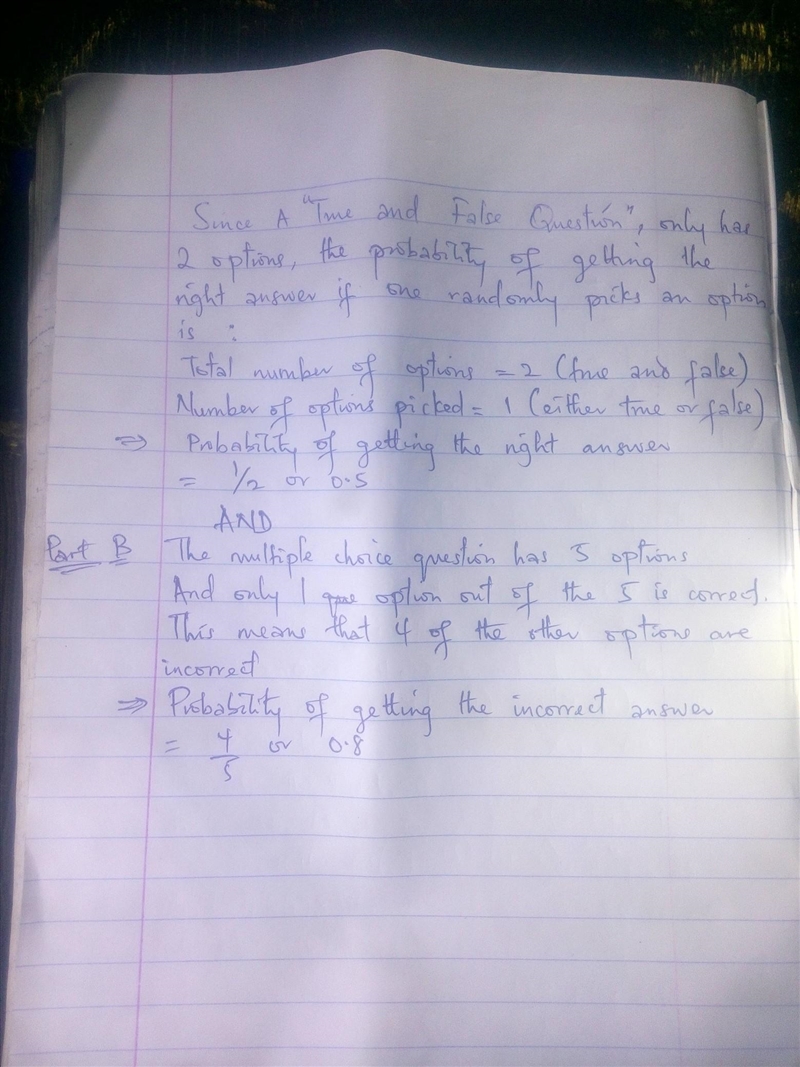 Since A "True and False Question", only has
2 options, the probability of getting the
right answer if one randomly picks an option
is :
Total number of options = 2 (true and false)
Number of options picked = 1 (either true or false)
⇒ Probability of getting the right answer
= 1/2 or 0.5
AND
Part B The multiple choice question has 5 options
And only 1 option out of the 5 is correct.
This means that 4 of the other options are
incorrect
⇒ Probability of getting the incorrect answer
= 4/5 or 0.8